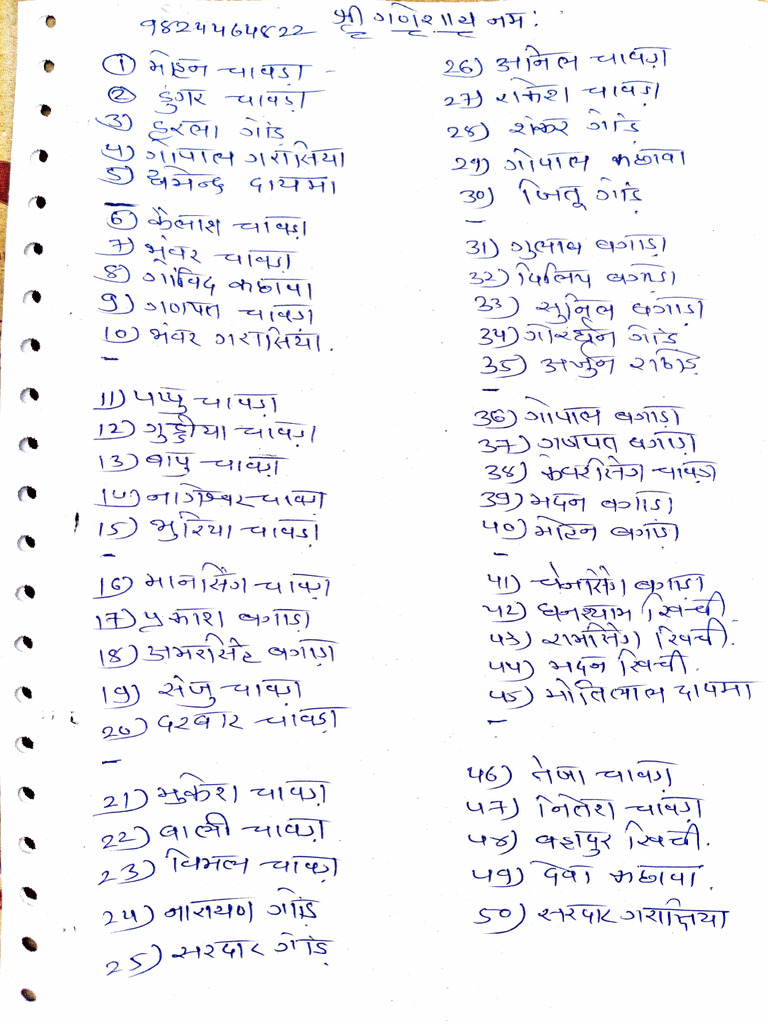 9824464822 श्री गणेशाय नमः
1) मोहन चावड़ा
2) डुंगर चावड़ा
3) हरला गोड़
4) गोपाल गरासिया
5) धर्मेन्द्र दायमा
6) कैलाश चावड़ा
7) भंवर चावड़ा
8) गोविंद कछावा
9) गणपत चावड़ा
10) भंवर गरासिया.
11) पप्पु चावड़ा
12) गुड्डीया चावड़ा
13) बापु चावड़ा
14) नागेश्वर चावड़ा
15) भुरिया चावड़ा
16) मानसिंग चावड़ा
17) प्रकाश बगाड़ा
18) अमरसिंह बगाड़ा
19) संजु चावड़ा
20) दरबार चावड़ा
21) मुकेश चावड़ा
22) बाली चावड़ा
23) विमल चावड़ा
24) नारायण गोड़
25) सरदार गोड़
26) अनिल चावड़ा
27) राकेश चावड़ा
28) शंकर गोड़
29) गोपाल कछावा
30) जितू गोड़
31) गुलाब बगाड़ा
32) दिलिप बगाड़ा
33) सुनिल बगाड़ा
34) गोरधन गोड़
35) अर्जुन
36) गोपाल बगाड़ा
37) गणपत बगाड़ा
38) कंवरसिंग चावड़ा
39) मदन बगाड़ा
40) मोहन बगाड़ा
41) चेनसिंग बगाड़ा
42) घनश्याम खिंची.
43) रामसिंग खिंची.
44) मदन खिंची.
45) मोतिलाल दायमा
46) तेजा चावड़ा
47) नितेश चावड़ा
48) बहादुर खिंची.
49) देवा कछावा.
50) सरदार गरासिया